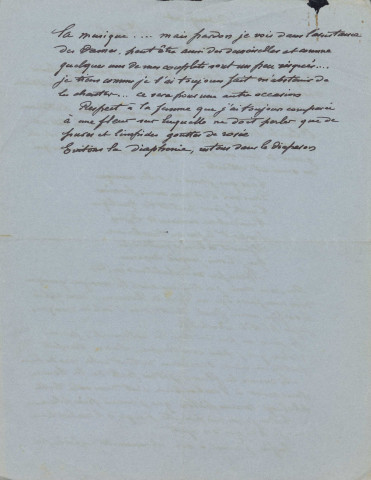 la musique .... mais pardon je vois dans l'assistance
des Dames, peut être aussi des demoiselles et comme
quelques uns de mes couplets sont un peu risqués ....
je tiens comme je l'ai toujours fait m'abstenir de
le chanter ... ce sera pour une autre occasion
Respect à la femme que j'ai toujours comparée
à une fleur sur laquelle ne doit perler que de
pures et limpides gouttes de rosée
Evitons la diaphonie, restons dans le diapason